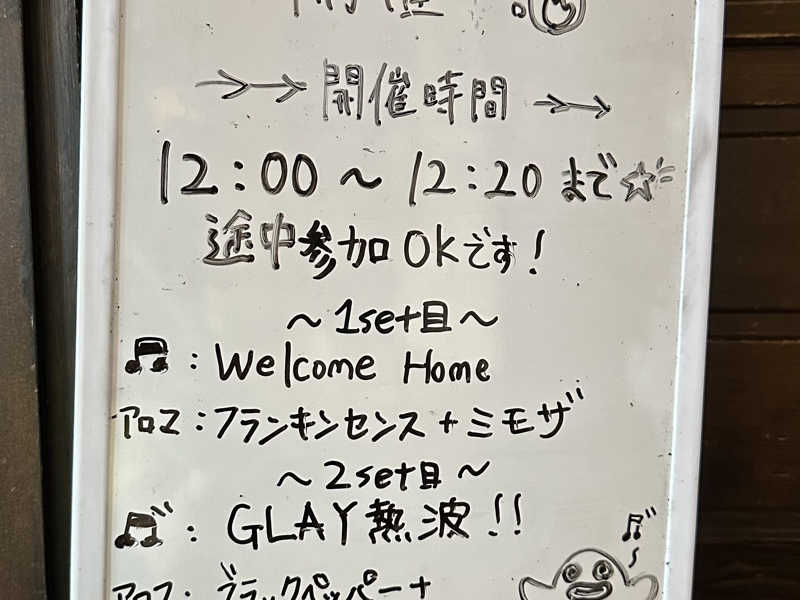 開催
開催時間
12:00 ～ 12:20 まで☆
途中参加OKです!
～ 1set目 ～
♫ : Welcome Home
アロマ : フランキンセンス + ミモザ
～ 2set目 ～
♫ : GLAY熱波!!
アロマ : ブラックペッパー+